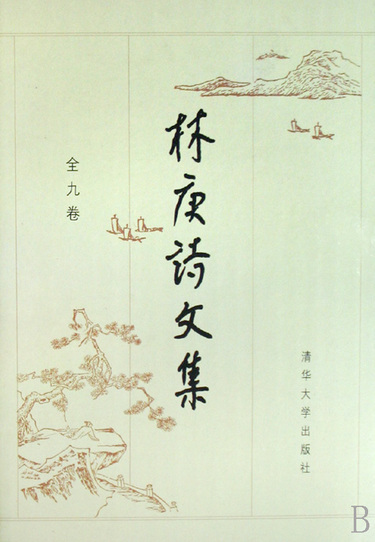 林庚诗文集
全九卷
清华大学出版社
B